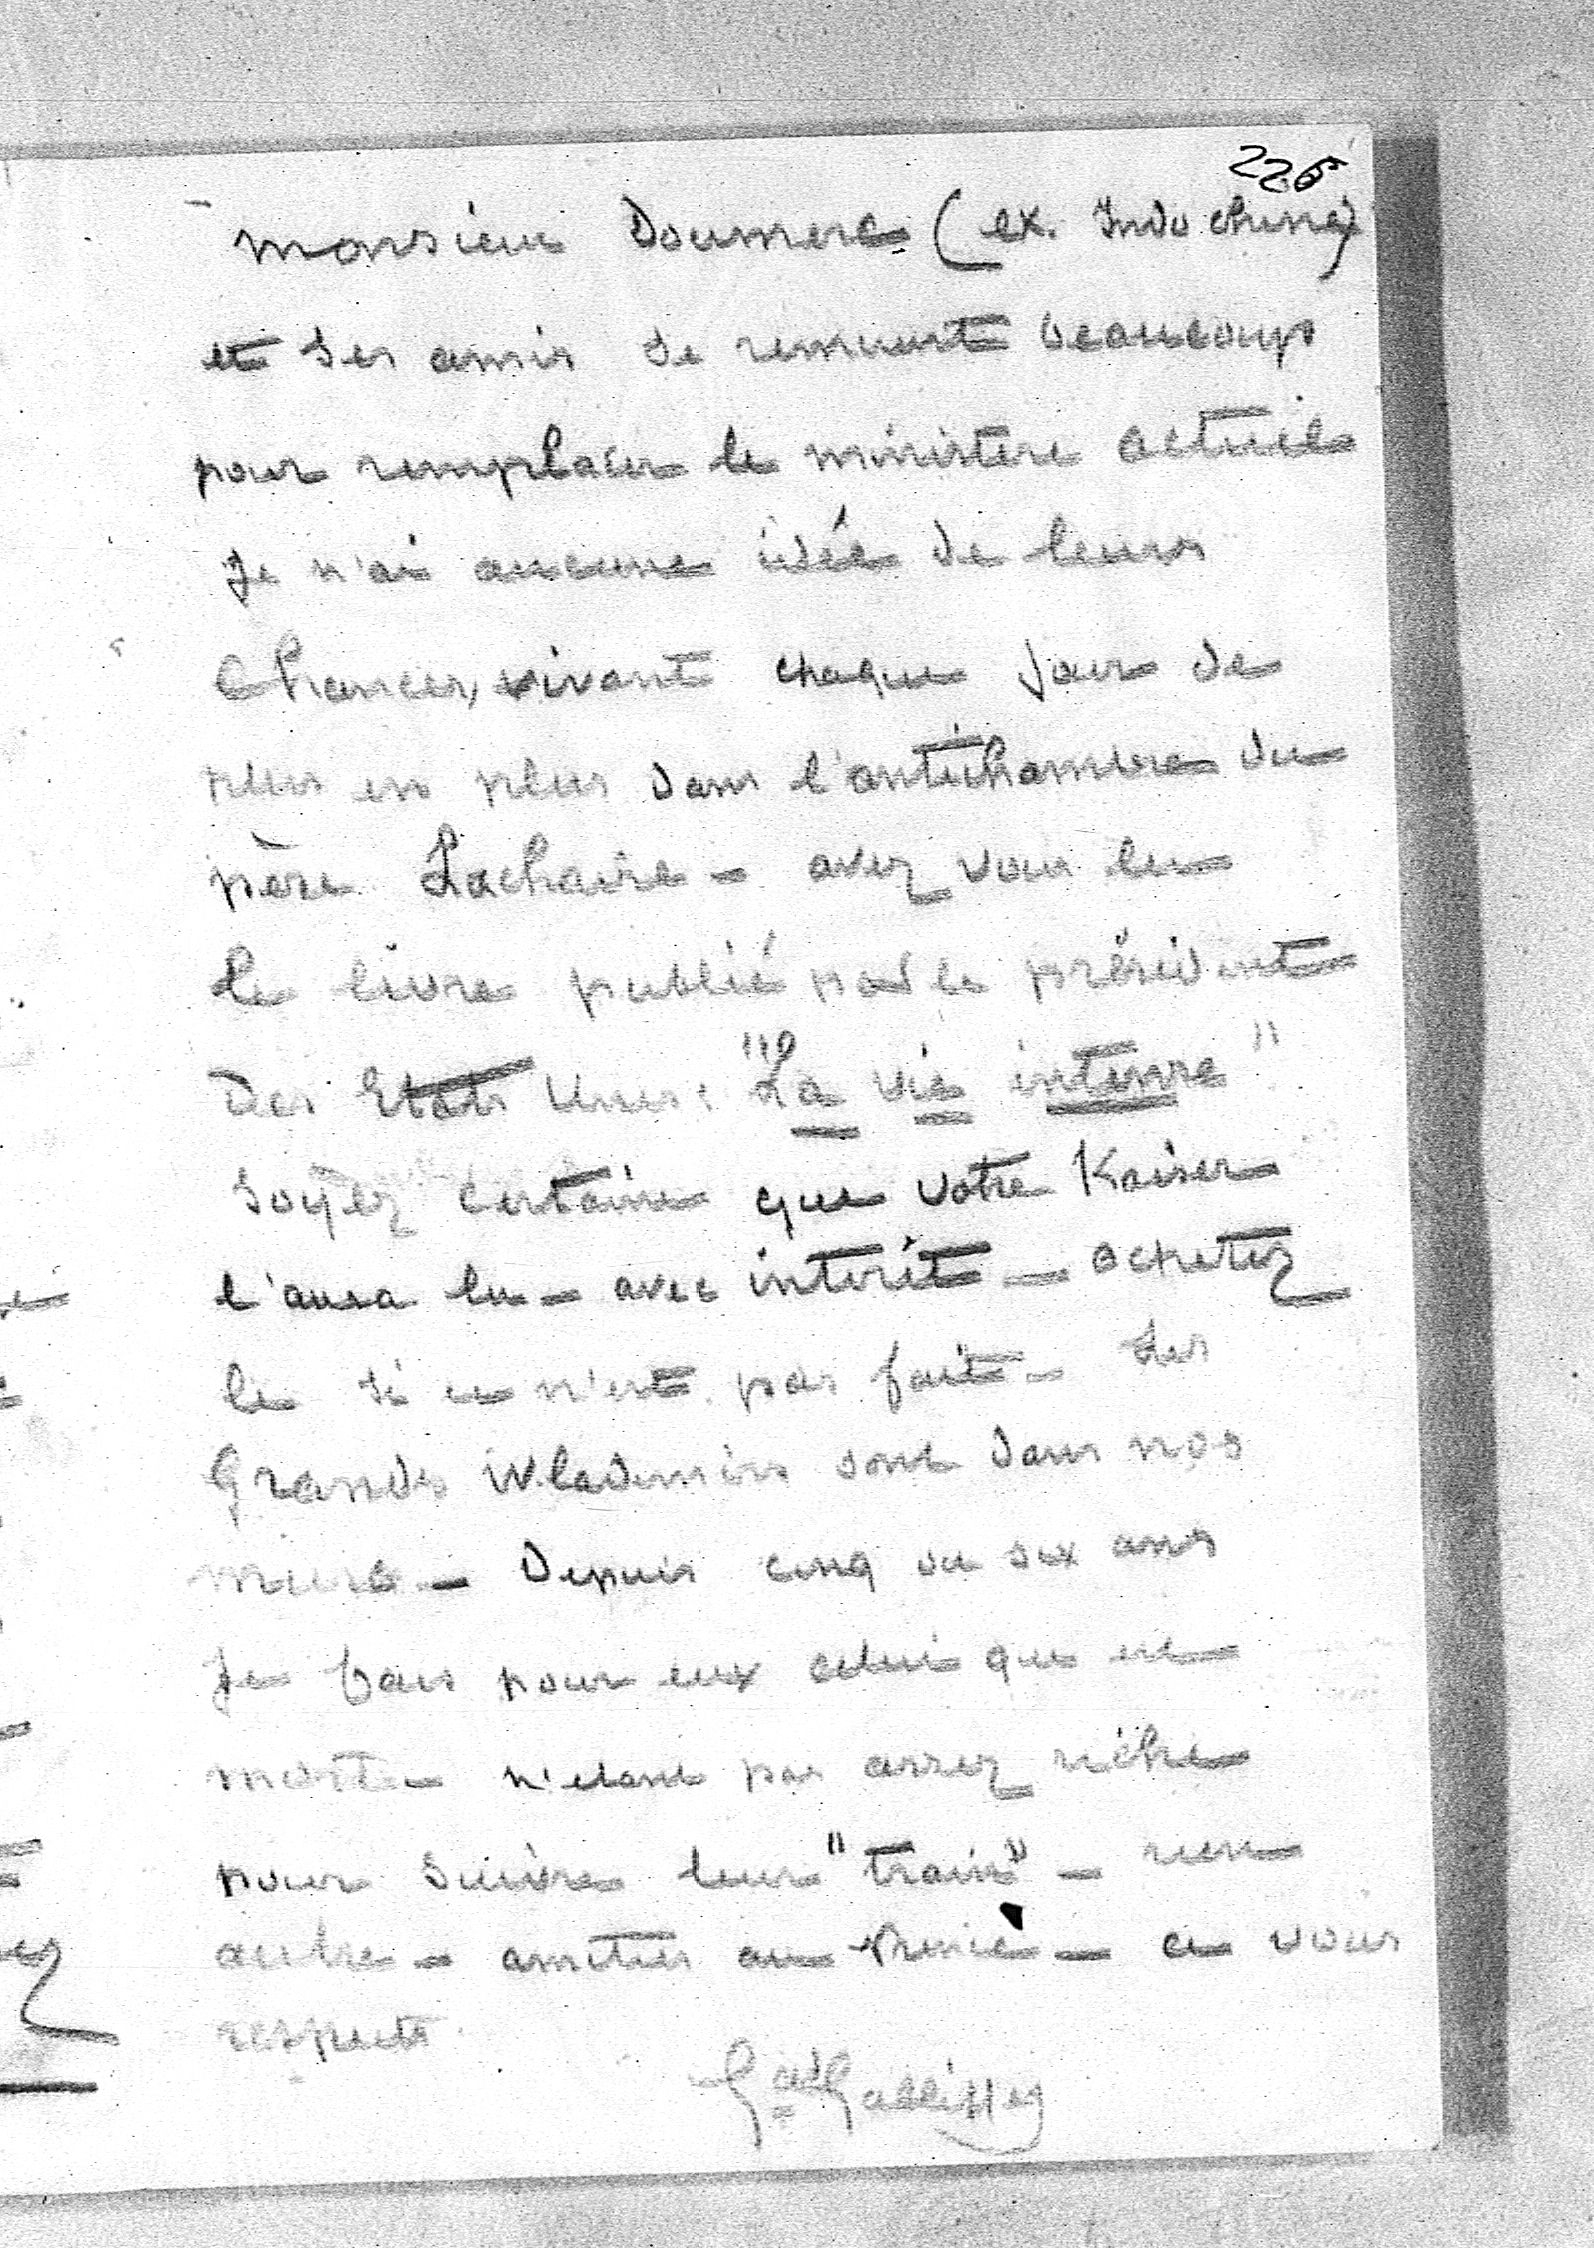 226
monsieur Doumere (ex. Indo chine)
et ses amis se remuent beaucoup
pour remplacer le ministere actuel
je n'ai aucune idée de leurs
chances, vivant chaque jour de
plus en plus dans l'antichambre du
père Lachaise - avez vous lu
le livre publié par le président
des Etats Unis: "La vie intense"
soyez certaine que votre Kaiser
l'aura lu - avec intérêt - achetez
le si ce n'est pas fait - Les
Grands Wladimirs sont dans nos
murs - Depuis cinq ou six ans
je fais pour eux celui que est
mort - n'etant pas assez riche
pour suivre leur "train" - rien
autre - amitiés au Prince - a vous
respects
Gal Galliffet